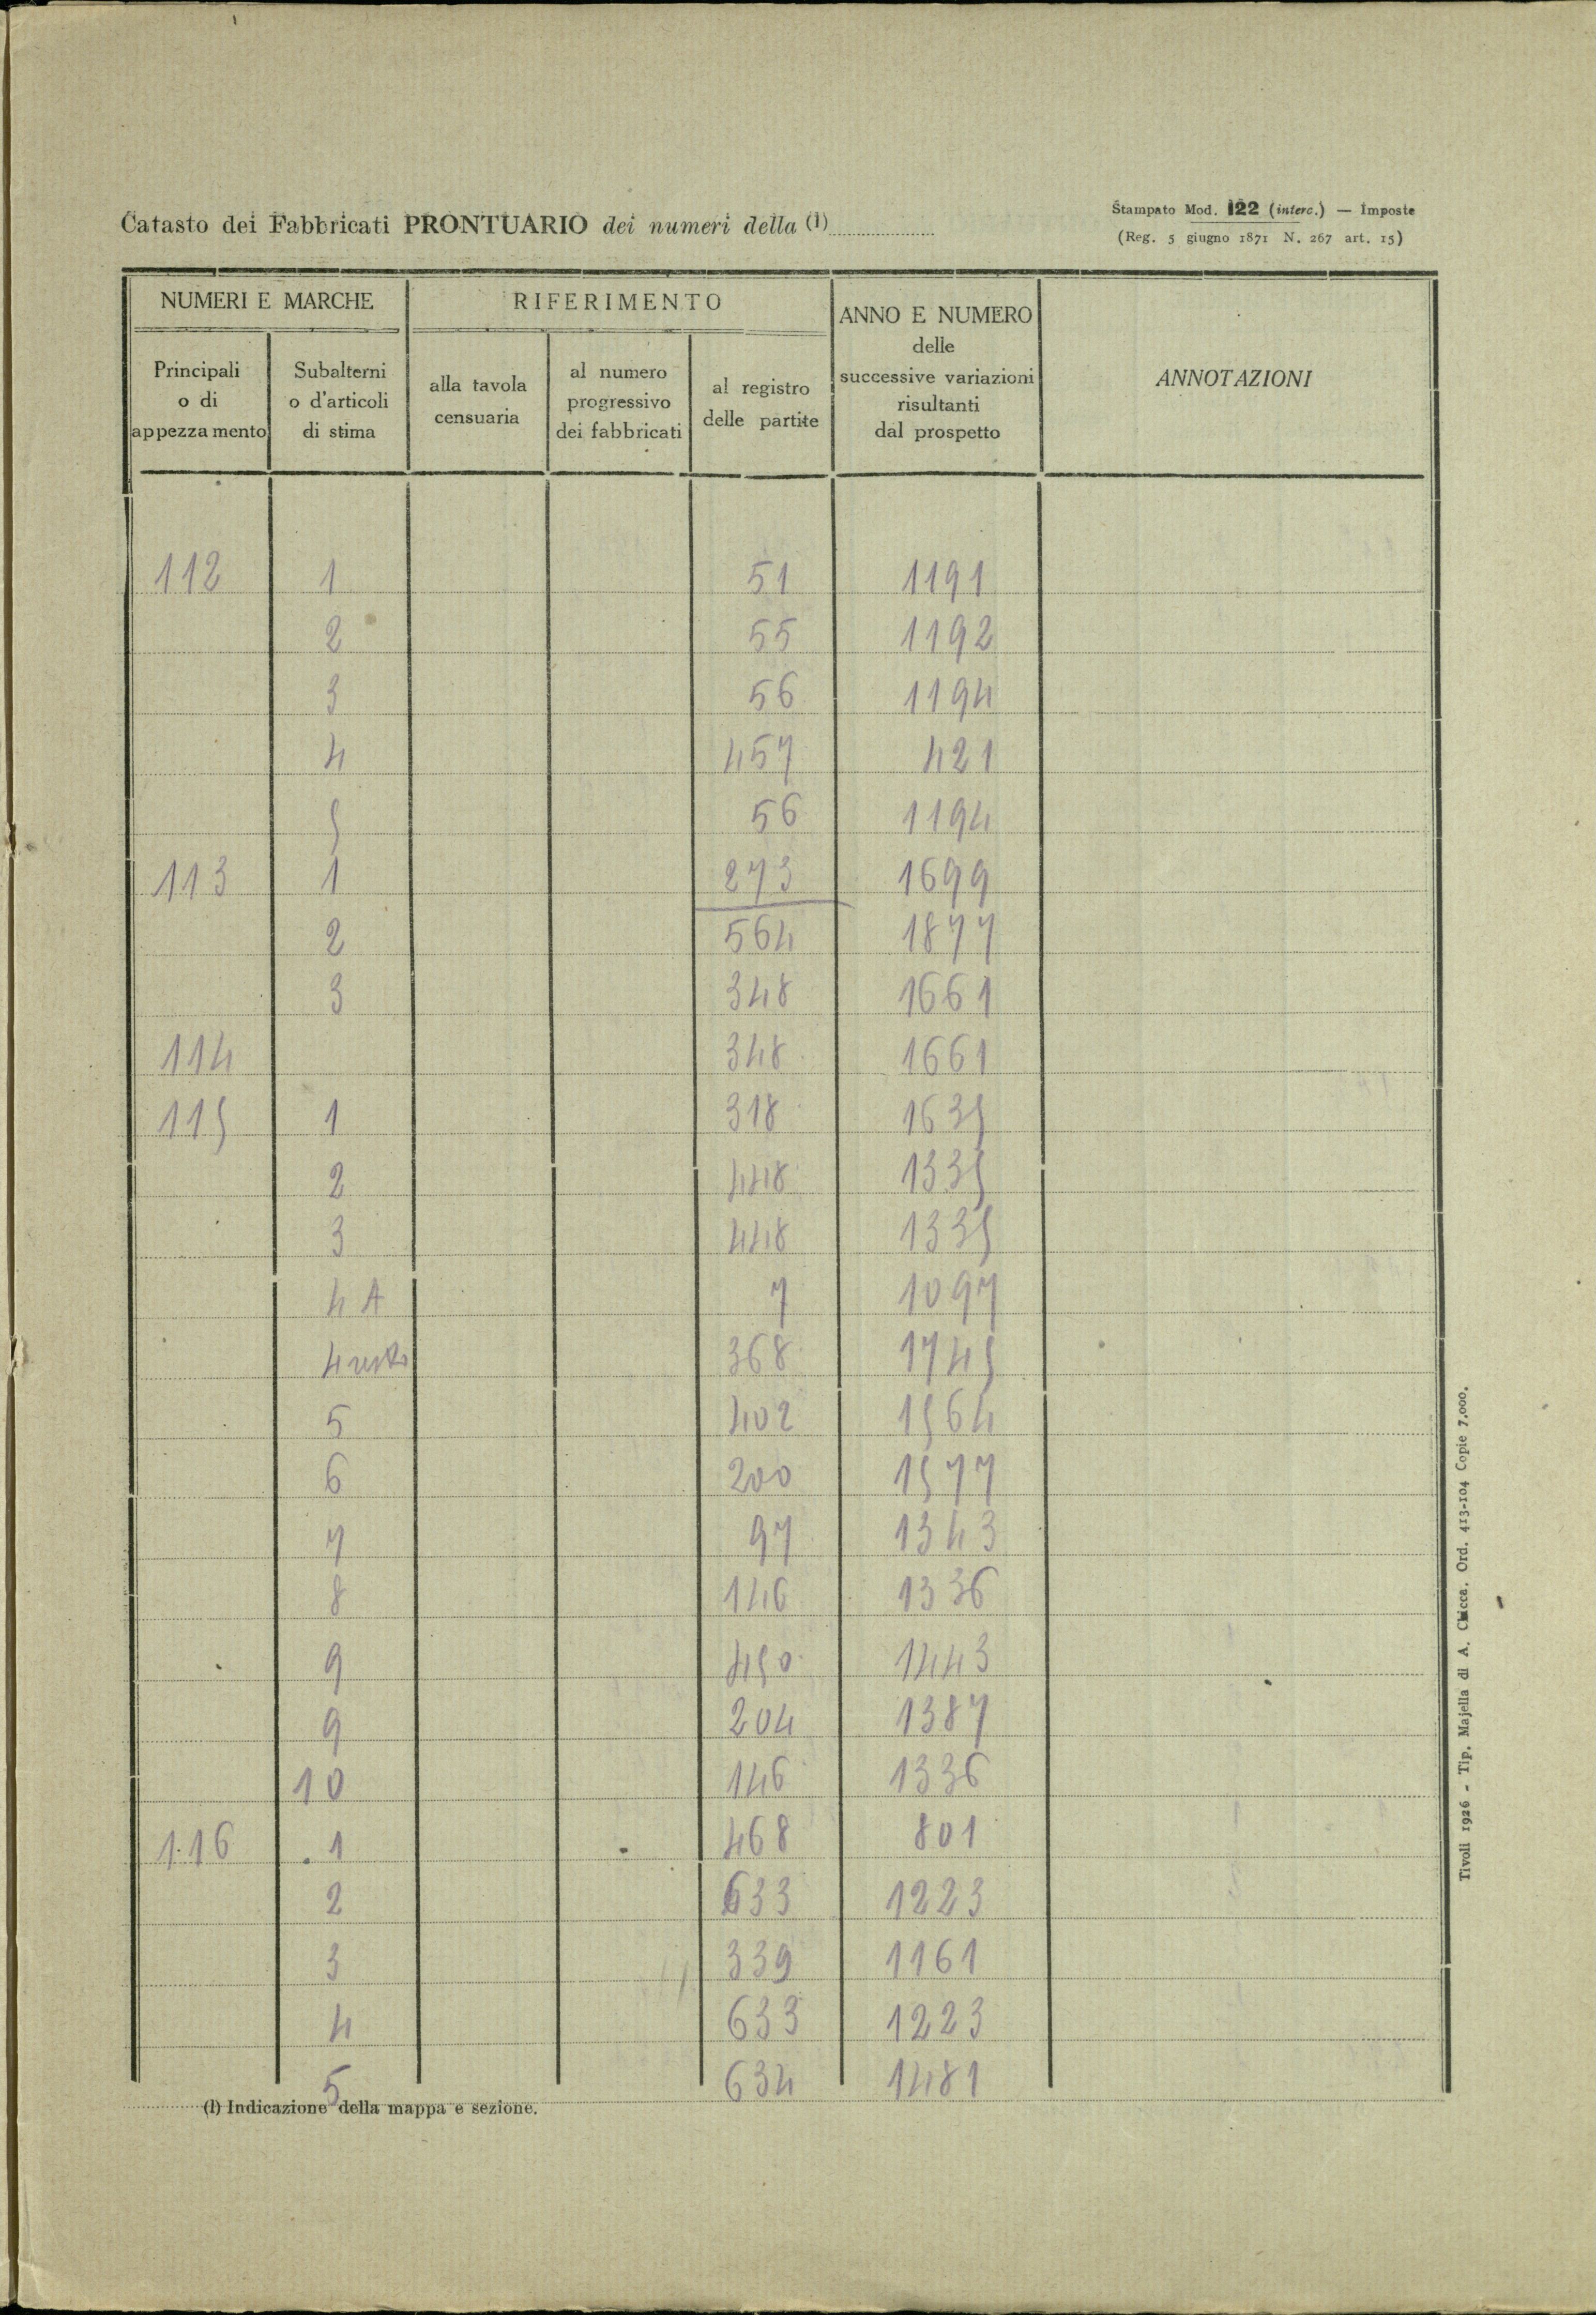 Catasto dei Fabbricati PRONTUARIO dei numeri della (1)
Stampato Mod. 122 (interc.) — Imposte
(Reg. 5 giugno 1871 N. 267 art. 15)
NUMERI E MARCHE
RIFERIMENTO
ANNO E NUMERO
delle
successive variazioni
risultanti
dal prospetto
ANNOTAZIONI
Principali
o di
appezzamento
Subalterni
o d'articoli
di stima
alla tavola
censuaria
al numero
progressivo
dei fabbricati
al registro
delle partite
112 1 51 1191
2 55 1192
3 56 1194
4 457 421
5 56 1194
113 1 273 1699
2 564 1877
3 348 1661
114 348 1661
115 1 318 1635
2 448 1335
3 448 1335
4 A 7 1097
4 resto 368 1745
5 402 1564
6 200 1577
7 97 1343
8 146 1336
9 450 1443
9 204 1387
10 146 1336
116 1 468 801
2 633 1223
3 339 1161
4 633 1223
5 634 1481
(1) Indicazione della mappa e sezione.
Tivoli 1926 - Tip. Majella di A. Chicca. Ord. 413-104 Copie 7.000.